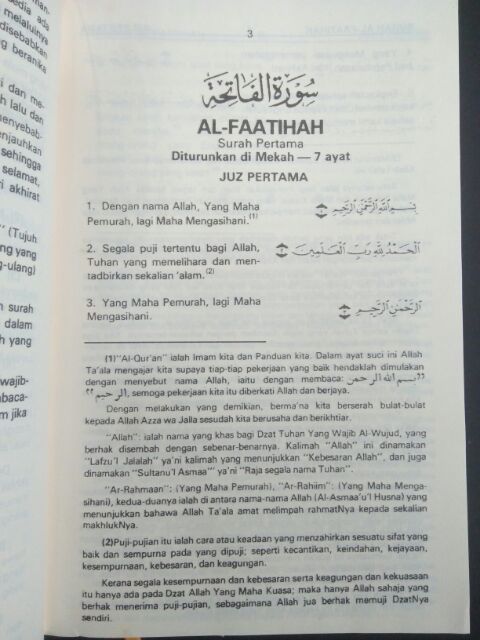 3
سُورَةُ الفَاتِحَة
AL-FAATIHAH
Surah Pertama
Diturunkan di Mekah — 7 ayat
JUZ PERTAMA
1. Dengan nama Allah, Yang Maha
Pemurah, lagi Maha Mengasihani.(1)
بِسْمِ اللَّهِ الرَّحْمَٰنِ الرَّحِيمِ
2. Segala puji tertentu bagi Allah,
Tuhan yang memelihara dan men-
tadbirkan sekalian 'alam.(2)
الْحَمْدُ لِلَّهِ رَبِّ الْعَالَمِينَ
3. Yang Maha Pemurah, lagi Maha
Mengasihani.
الرَّحْمَٰنِ الرَّحِيمِ
(1)"Al-Qur'an" ialah Imam kita dan Panduan kita. Dalam ayat suci ini Allah
Ta'ala mengajar kita supaya tiap-tiap pekerjaan yang baik hendaklah dimulakan
dengan menyebut nama Allah, iaitu dengan membaca: "بسم الله الرحمن
الرحيم", semoga pekerjaan kita itu diberkati Allah dan berjaya.
Dengan melakukan yang demikian, berma'na kita berserah bulat-bulat
kepada Allah Azza wa Jalla sesudah kita berusaha dan berikhtiar.
"Allah": ialah nama yang khas bagi Dzat Tuhan Yang Wajib Al-Wujud, yang
berhak disembah dengan sebenar-benarnya. Kalimah "Allah" ini dinamakan
"Lafzu'l Jalalah" ya'ni kalimah yang menunjukkan "Kebesaran Allah", dan juga
dinamakan "Sultanu'l Asmaa'" ya'ni "Raja segala nama Tuhan".
"Ar-Rahmaan": (Yang Maha Pemurah), "Ar-Rahiim": (Yang Maha Menga-
sihani), kedua-duanya ialah di antara nama-nama Allah (Al-Asmaa'u'l Husna) yang
menunjukkan bahawa Allah Ta'ala amat melimpah rahmatNya kepada sekalian
makhlukNya.
(2)Puji-pujian itu ialah cara atau keadaan yang menzahirkan sesuatu sifat yang
baik dan sempurna pada yang dipuji; seperti kecantikan, keindahan, kejayaan,
kesempurnaan, kebesaran, dan keagungan.
Kerana segala kesempurnaan dan kebesaran serta keagungan dan kekuasaan
itu hanya ada pada Dzat Allah Yang Maha Kuasa; maka hanya Allah sahaja yang
berhak menerima puji-pujian, sebagaimana Allah jua berhak memuji DzatNya
sendiri.